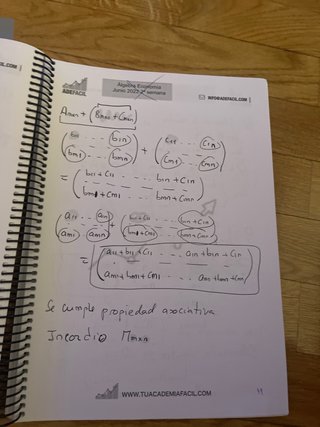 IL.COM
ADEFACIL
Álgebra Economía
Junio 2022 2ª semana
INFO@ADEFACIL.COM
Amxn + (Bmxn + Cmxn)
(b11 ... b1n) + (c11 ... c1n)
(bm1 ... bmn) (cm1 ... cmn)
= (b11 + c11 b1n + c1n)
(bm1 + cm1 bmn + cmn)
(a11 ... a1n) + (b11 + c11 ... b1n + c1n)
(am1 ... amn) (bm1 + cm1 ... bmn + cmn)
= (a11 + b11 + c11 ... a1n + b1n + c1n)
(am1 + bm1 + cm1 amn + bmn + cmn)
Se cumple propiedad asociativa
WWW.TUACADEMIAFACIL.COM